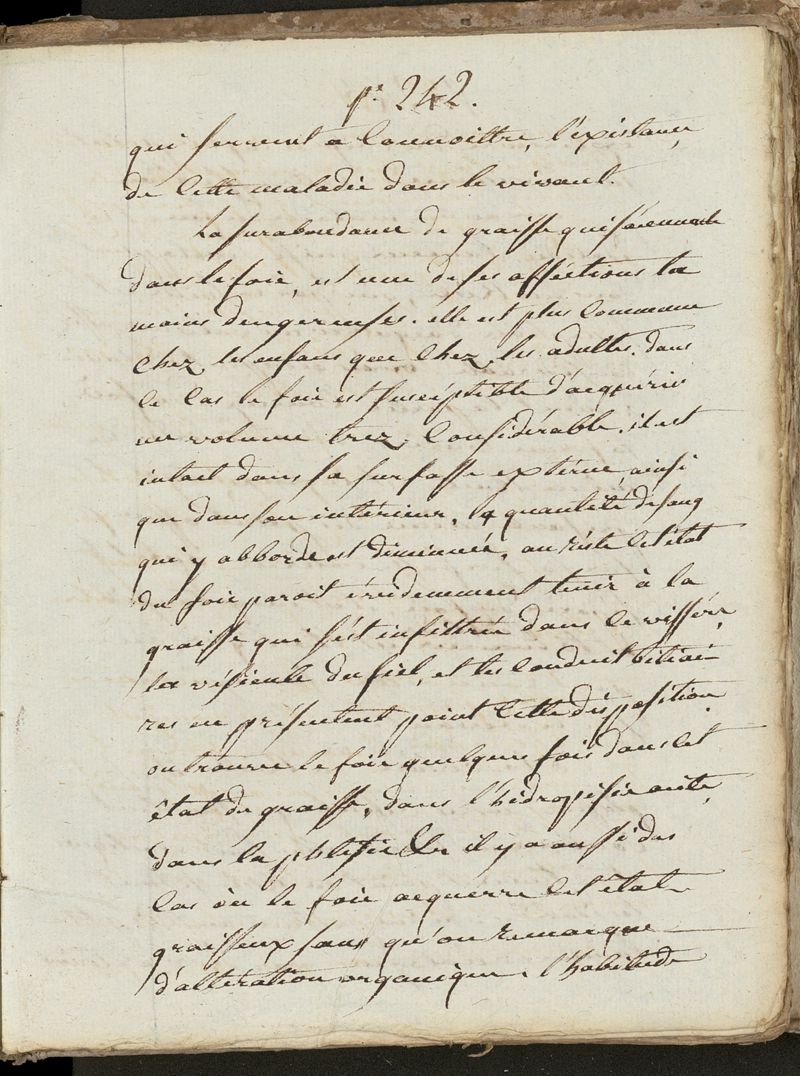 p.r 242.
qui servent a connoittre, l'existance,
de cette maladie dans le vivant.
La surabondance de graisse qui s'acumule
dans le foie, est une de ses affections la
moins dengereuses. elle est plus commune
chez, les enfans que chez, les adultes. dans
ce cas le foie est suscéptible d'acquérir
un volume trez, considérable. il est
intact dans sa surfasse extérne, ainsi
que dans son intérieur, quantité de sang
qui y abborde est diminuée, au réste cet état
du foie paroit évidemment tenir à la
graisse qui s'ést infiltrée dans ce vissére
la vésicule du fiel, et les conduit biliai-
res ne présentent point cette disposition
on trouve le foie quelques fois dans cet
état de graisse, dans l'hidropisie acite,
dans la phtisie &c. il y a aussi des
cas òu le foie acquerre cet état
graisseux sans qu'on remarque
d'altération organique. l'habitude